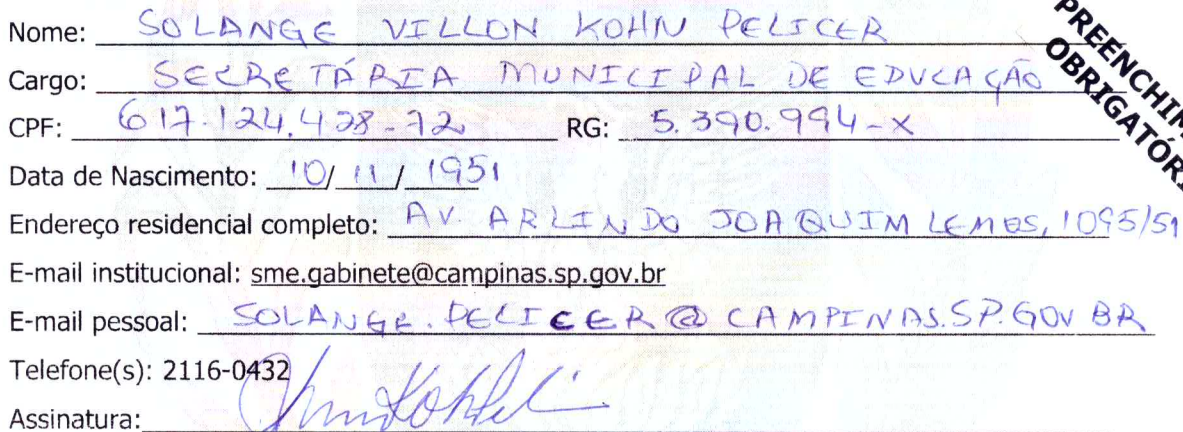 Nome: SOLANGE VILLON KOHN PELICER
PREENCHIM
OBRIGATÓRI
Cargo: SECRETÁRIA MUNICIPAL DE EDUCAÇÃO
CPF: 617.124.428-72 RG: 5.390.994-X
Data de Nascimento: 10/11/1951
Endereço residencial completo: AV. ARLINDO JOAQUIM LEMOS, 1095/51
E-mail institucional: sme.gabinete@campinas.sp.gov.br
E-mail pessoal: SOLANGE.PELICER@CAMPINAS.SP.GOV BR
Telefone(s): 2116-0432
Assinatura: